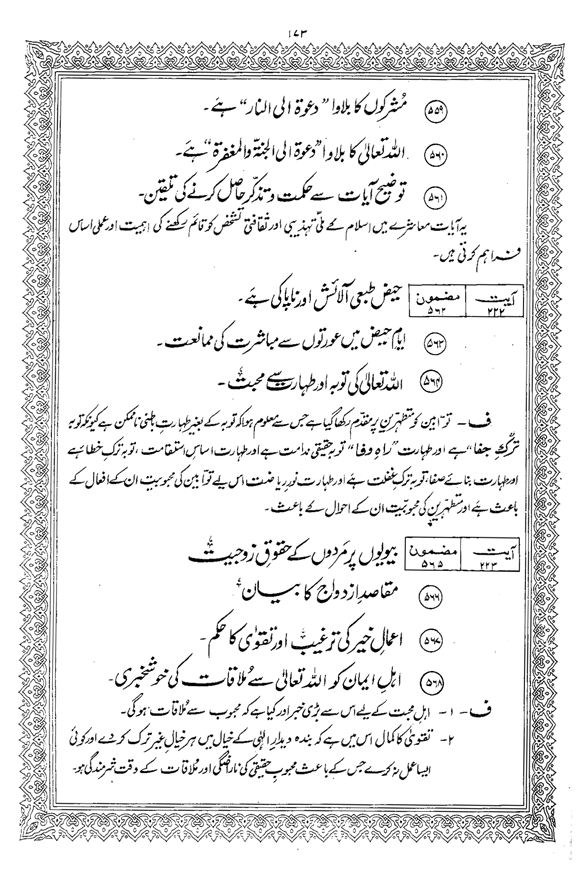 ۱۷۳
۵۵۹ مشرکوں کا بلاوا "دعوۃ الی النار" ہے۔
۵۶۰ اللہ تعالیٰ کا بلاوا "دعوۃ الی الجنۃ والمغفرۃ" ہے۔
۵۶۱ توضیحِ آیات سے حکمت و تذکّر حاصل کرنے کی تلقین۔
یہ آیات معاشرے میں اسلام کے ملّی تہذیبی اور ثقافتی تشخص کو قائم رکھنے کی اہمیت اور عملی اساس
فراہم کرتی ہیں۔
آیت ۲۲۲ مضمون ۵۶۲ حیض طبعی آلائش اور ناپاکی ہے۔
۵۶۳ ایامِ حیض میں عورتوں سے مباشرت کی ممانعت۔
۵۶۴ اللہ تعالیٰ کی توبہ اور طہارت سے محبت۔
ف۔ توّابین کو متطہرین پر مقدم رکھا گیا ہے جس سے معلوم ہوا کہ توبہ کے بغیر طہارتِ باطنی ناممکن ہے کیونکہ توبہ
ترکِ جفا" ہے اور طہارت "راہِ وفا" توبہ حقیقی ندامت ہے اور طہارت اساسِ استقامت، توبہ ترکِ خطا ہے
اور طہارت بنائے صفا، توبہ ترکِ غفلت ہے اور طہارت نورِ ریاضت اس لیے توّابین کی محبوبیت ان کے افعال کے
باعث ہے اور متطہرین کی محبوبیت ان کے احوال کے باعث۔
آیت ۲۲۳ مضمون ۵۶۵ بیویوں پر مَردوں کے حقوقِ زوجیت
۵۶۶ مقاصدِ ازدواج کا بیان
۵۶۷ اعمالِ خیر کی ترغیب اور تقوٰی کا حکم۔
۵۶۸ اہلِ ایمان کو اللہ تعالیٰ سے مُلاقات کی خوشخبری۔
ف۔ ۱۔ اہلِ محبت کے لیے اس سے بڑی خبر اور کیا ہے کہ محبوب سے مُلاقات ہوگی۔
۲۔ تقوٰی کا کمال اس میں ہے کہ بندہ دیدارِ الٰہی کے خیال میں ہر خیالِ غیر ترک کر دے اور کوئی
ایسا عمل نہ کرے جس کے باعث محبوبِ حقیقی کی ناراضگی اور مُلاقات کے وقت شرمندگی ہو۔